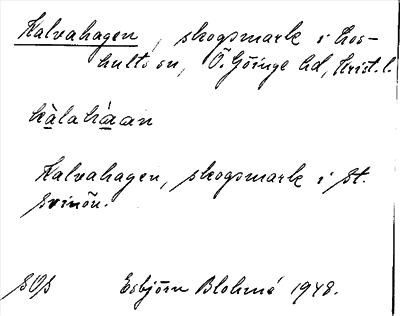 Kalvahagen, skogsmark i Los-
hults sn, Ö. Göinge hd, Krist. l.
kàlahágan
Kalvahagen, skogsmark i St.
Svinön.
Esbjörn Blohmé 1948.